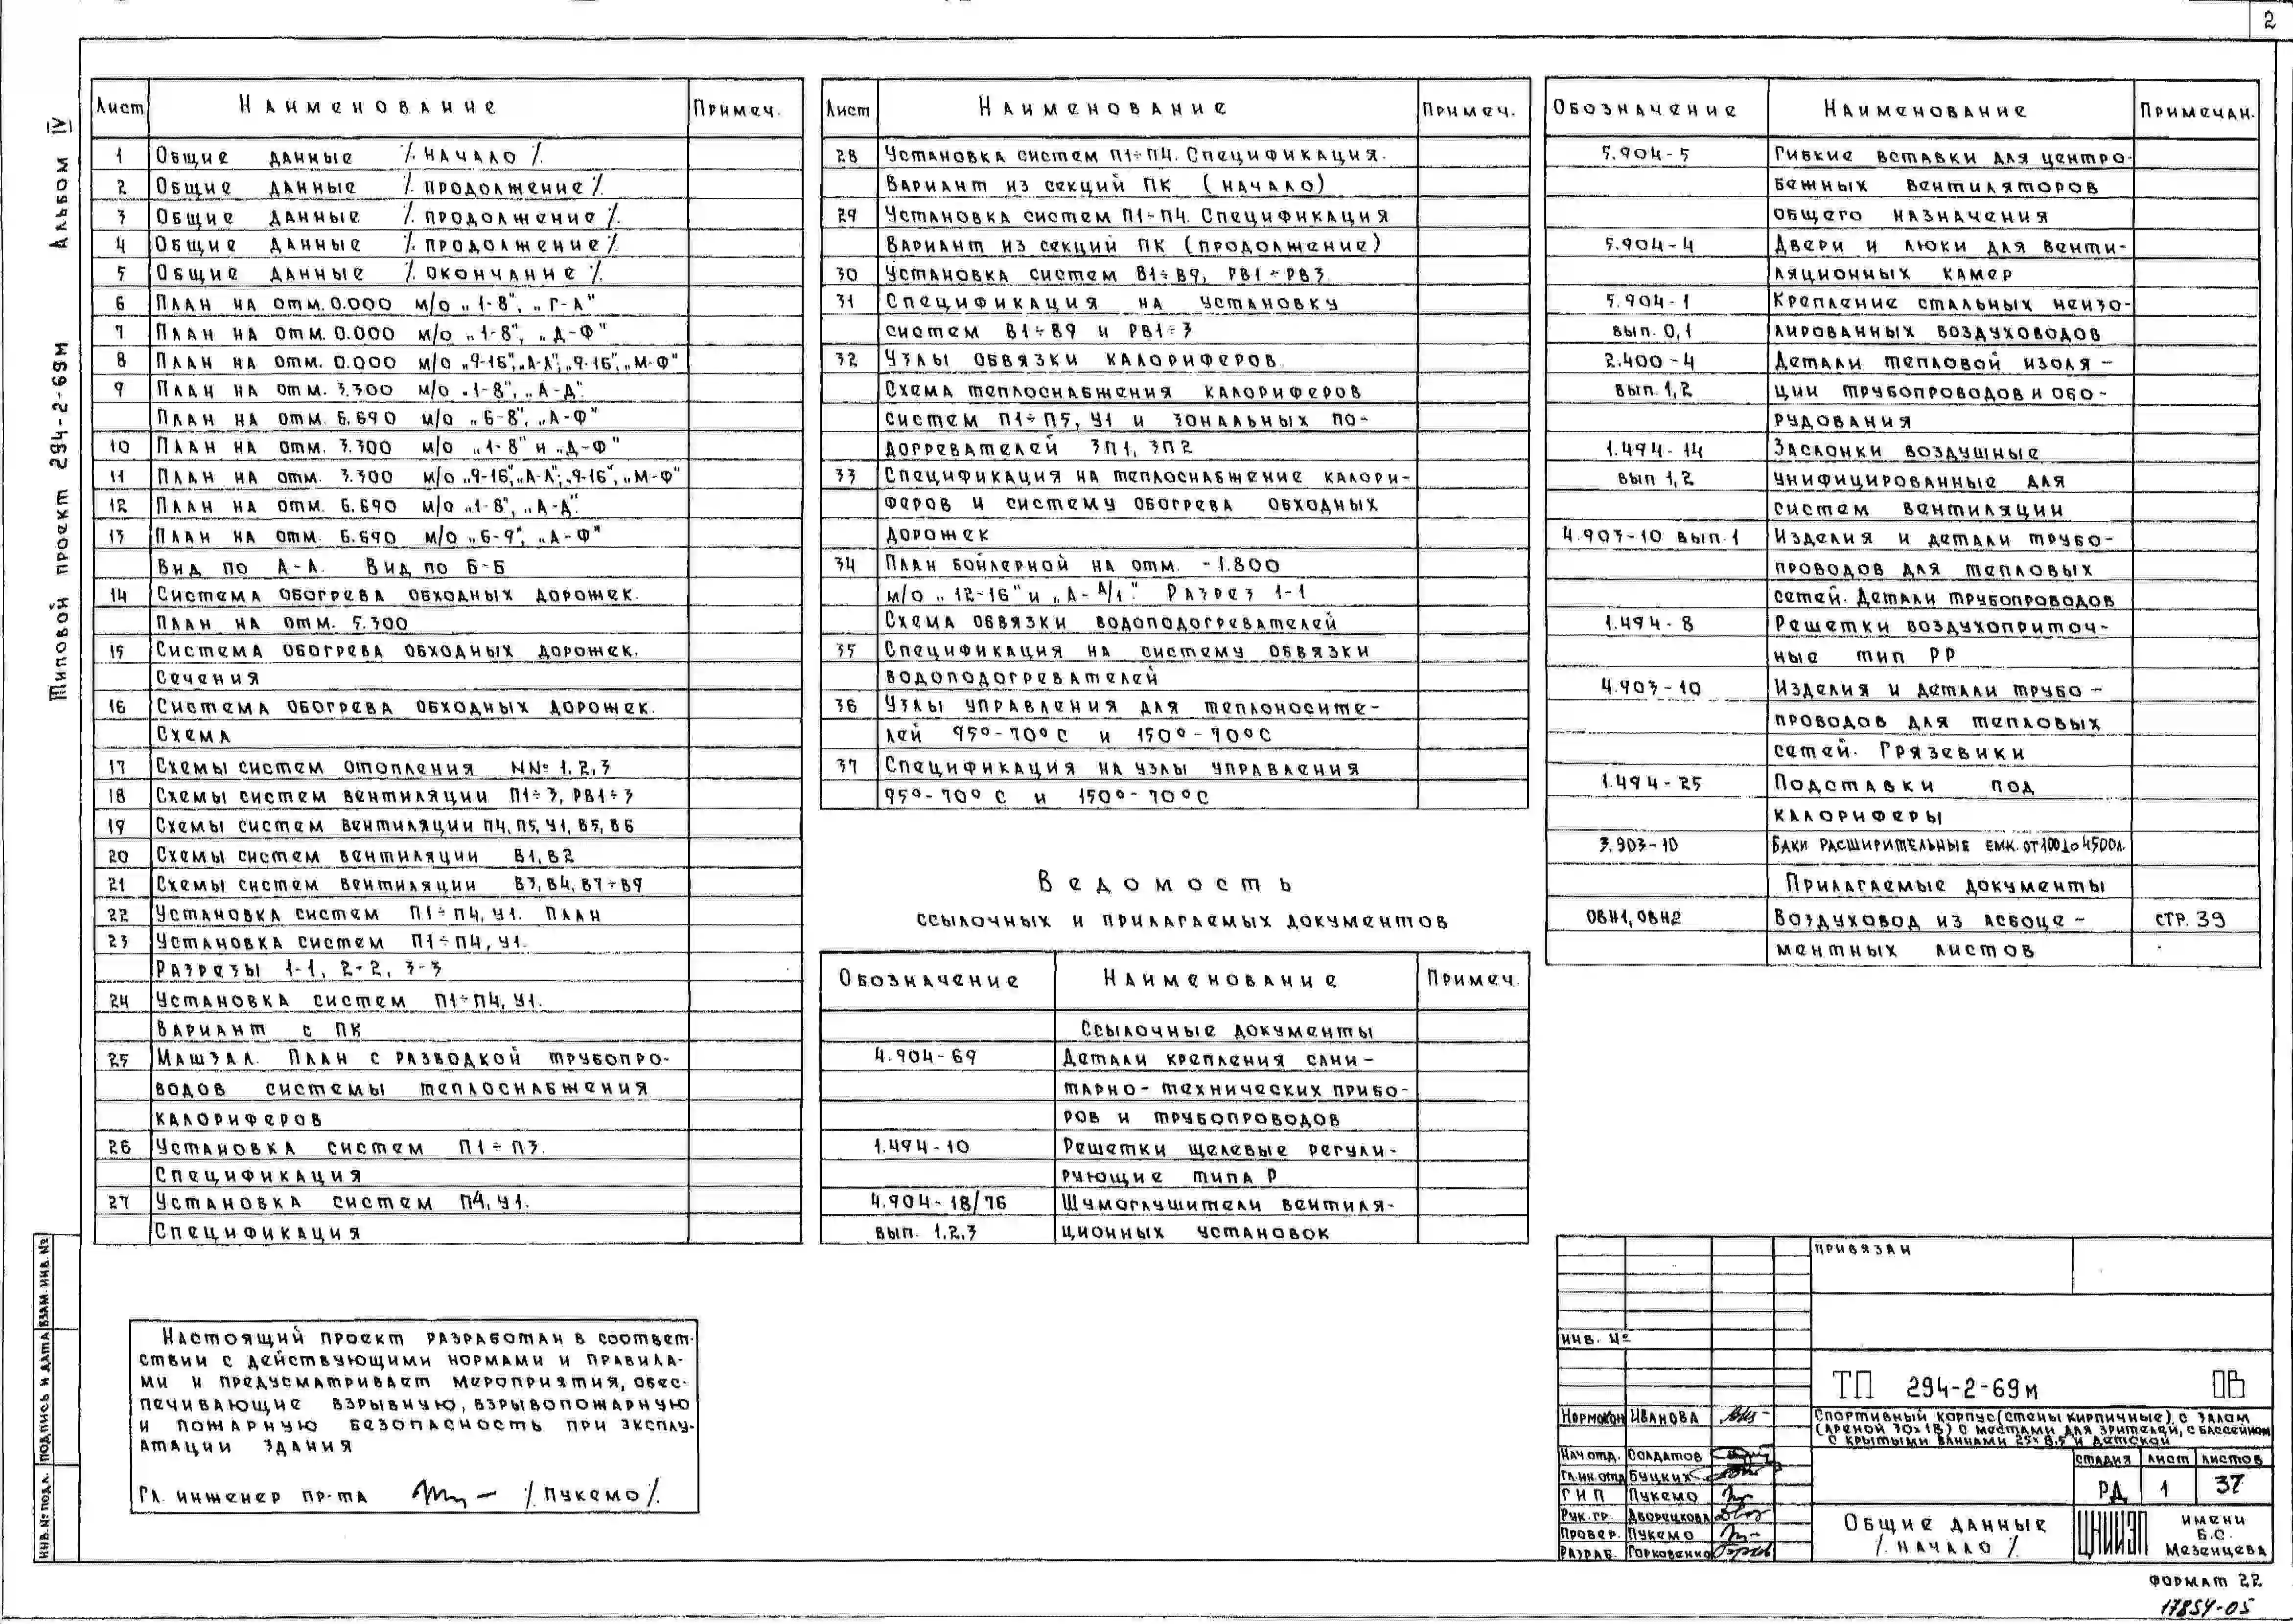 2
Альбом IV
Типовой проект 294-2-69м
Лист Наименование Примеч.
1 Общие данные /. начало /.
2 Общие данные /. продолжение /.
3 Общие данные /. продолжение /.
4 Общие данные /. продолжение /.
5 Общие данные /. окончание /.
6 План на отм. 0.000 м/о „1-8", „Г-А"
7 План на отм. 0.000 м/о „1-8", „Д-Ф"
8 План на отм. 0.000 м/о „9-16", „А-Л"; „9-16", „М-Ф"
9 План на отм. 3.300 м/о „1-8", „А-Д".
План на отм. 6.690 м/о „6-8", „А-Ф"
10 План на отм. 3.300 м/о „1-8" и „Д-Ф"
11 План на отм. 3.300 м/о „9-16", „А-Л"; „9-16", „М-Ф"
12 План на отм. 6.690 м/о „1-8", „А-Д".
13 План на отм. 6.690 м/о „6-9", „А-Ф"
Вид по А-А. Вид по Б-Б
14 Система обогрева обходных дорожек.
План на отм. 5.300
15 Система обогрева обходных дорожек.
Сечения
16 Система обогрева обходных дорожек.
Схема
17 Схемы систем отопления NN° 1,2,3
18 Схемы систем вентиляции П1÷3, РВ1÷3
19 Схемы систем вентиляции П4, П5, У1, В5, В6
20 Схемы систем вентиляции В1, В2
21 Схемы систем вентиляции В3, В4, В7÷В9
22 Установка систем П1÷П4, У1. План
23 Установка систем П1÷П4, У1.
Разрезы 1-1, 2-2, 3-3
24 Установка систем П1÷П4, У1.
Вариант с ПК
25 Машзал. План с разводкой трубопро-
водов системы теплоснабжения
калориферов
26 Установка систем П1÷П3.
Спецификация
27 Установка систем П4, У1.
Спецификация
Лист Наименование Примеч.
28 Установка систем П1÷П4. Спецификация.
Вариант из секций ПК (начало)
29 Установка систем П1÷П4. Спецификация
Вариант из секций ПК (продолжение)
30 Установка систем В1÷В9, РВ1÷РВ3
31 Спецификация на установку
систем В1÷В9 и РВ1÷3
32 Узлы обвязки калориферов
Схема теплоснабжения калориферов
систем П1÷П5, У1 и зональных по-
догревателей ЗП1, ЗП2
33 Спецификация на теплоснабжение калори-
феров и систему обогрева обходных
дорожек
34 План бойлерной на отм. -1.800
м/о „12-16" и „А-А/1". Разрез 1-1
Схема обвязки водоподогревателей
35 Спецификация на систему обвязки
водоподогревателей
36 Узлы управления для теплоносите-
лей 95°-70°С и 150°-70°С
37 Спецификация на узлы управления
95°-70°С и 150°-70°С
Ведомость
ссылочных и прилагаемых документов
Обозначение Наименование Примеч.
Ссылочные документы
4.904-69 Детали крепления сани-
тарно-технических прибо-
ров и трубопроводов
1.494-10 Решетки щелевые регули-
рующие типа Р
4.904-18/76 Шумоглушители вентиля-
вып. 1,2,3 ционных установок
Обозначение Наименование Примечан.
5.904-5 Гибкие вставки для центро-
бежных вентиляторов
общего назначения
5.904-4 Двери и люки для венти-
ляционных камер
5.904-1 Крепление стальных неизо-
вып. 0,1 лированных воздуховодов
2.400-4 Детали тепловой изоля-
вып. 1,2 ции трубопроводов и обо-
рудования
1.494-14 Заслонки воздушные
вып 1,2 унифицированные для
систем вентиляции
4.903-10 вып.1 Изделия и детали трубо-
проводов для тепловых
сетей. Детали трубопроводов
1.494-8 Решетки воздухоприточ-
ные тип РР
4.903-10 Изделия и детали трубо-
проводов для тепловых
сетей. Грязевики
1.494-25 Подставки под
калориферы
3.903-10 Баки расширительные емк. от 100 до 4500л.
Прилагаемые документы
ОВН1, ОВН2 Воздуховод из асбоце- стр. 39
ментных листов
Настоящий проект разработан в соответ-
ствии с действующими нормами и правила-
ми и предусматривает мероприятия, обес-
печивающие взрывную, взрывопожарную
и пожарную безопасность при эксплу-
атации здания
Гл. инженер пр-та /. Пукемо /.
Инв.№ подл. Подпись и дата Взам. инв. №
Привязан
Инв. №
ТП 294-2-69м ОВ
Нормокон Иванова
Спортивный корпус (стены кирпичные) с залом
(ареной 30х18) с местами для зрителей, с бассейном
с крытыми ваннами 25х8,5 и детской
Нач.отд. Солдатов
Гл.ин.отд Буцких
ГИП Пукемо
Рук.гр. Дворецкова
Провер. Пукемо
Разраб. Горковенко
стадия лист листов
РД 1 37
Общие данные
/. начало /.
ЦНИИЭП имени
Б.С.
Мезенцева
Формат 22
17854-05